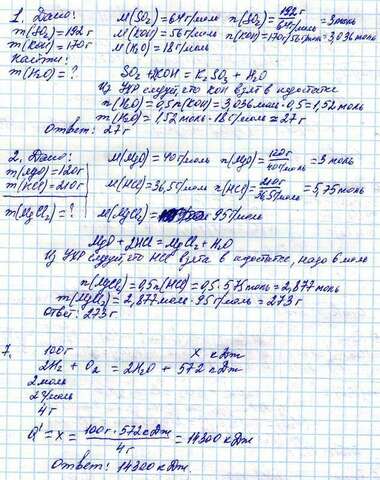 1. Дано: M(SO₂) = 64 г/моль n(SO₂) = 192 г / 64 г/моль = 3 моль
m(SO₂) = 192 г M(KOH) = 56 г/моль n(KOH) = 170 г/56 г/моль = 3,036 моль
m(KOH) = 170 г M(H₂O) = 18 г/моль
Найти:
m(H₂O) = ? SO₂ + 2KOH = K₂SO₃ + H₂O
Из УХР следует, что KOH взят в недостатке
n(H₂O) = 0,5n(KOH) = 3,036 моль · 0,5 = 1,52 моль
m(H₂O) = 1,52 моль · 18 г/моль ≈ 27 г
Ответ: 27 г
2. Дано: M(MgO) = 40 г/моль n(MgO) = 120 г / 40 г/моль = 3 моль
m(MgO) = 120 г
m(HCl) = 210 г M(HCl) = 36,5 г/моль n(HCl) = 210 г / 36,5 г/моль = 5,75 моль
m(MgCl₂) = ? M(MgCl₂) = 95 г/моль
MgO + 2HCl = MgCl₂ + H₂O
Из УХР следует, что HCl взята в недостатке, надо 6 моль
n(MgCl₂) = 0,5n(HCl) = 0,5 · 5,75 моль = 2,877 моль
m(MgCl₂) = 2,877 моль · 95 г/моль = 273 г
Ответ: 273 г
7. 100 г x кДж
2H₂ + O₂ = 2H₂O + 572 кДж
2 моль
2 г/моль
4 г
Q' = x = 100 г · 572 кДж / 4 г = 14300 кДж
Ответ: 14300 кДж